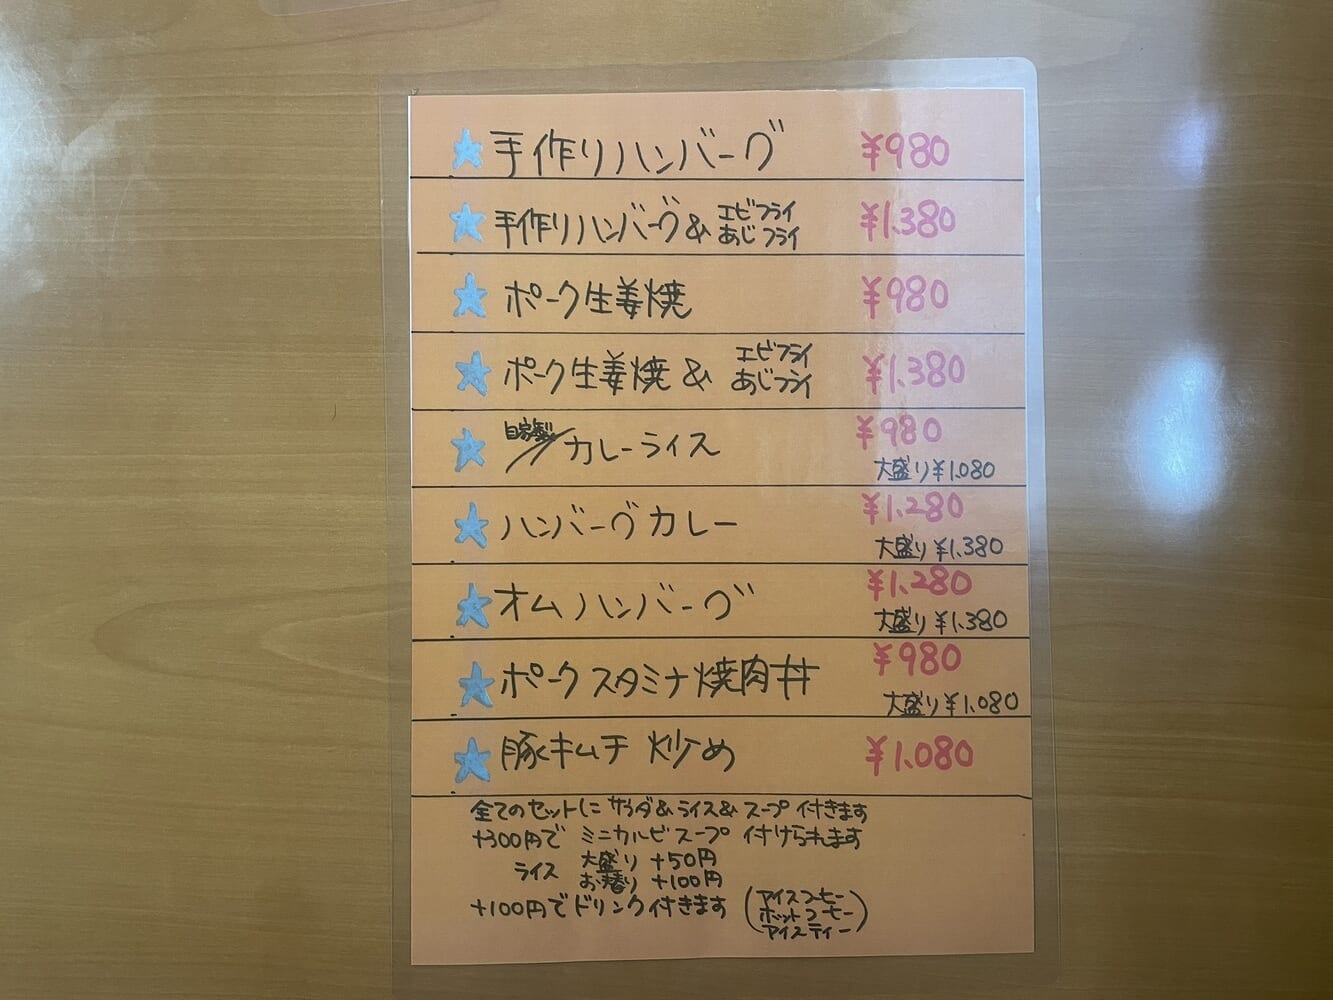 ★手作りハンバーグ ¥980
★手作りハンバーグ& エビフライ あじフライ ¥1.380
★ポーク生姜焼 ¥980
★ポーク生姜焼& エビフライ あじフライ ¥1.380
★自家製カレーライス ¥980
大盛り¥1.080
★ハンバーグカレー ¥1.280
大盛り¥1.380
★オムハンバーグ ¥1.280
大盛り¥1.380
★ポークスタミナ焼肉丼 ¥980
大盛り¥1.080
★豚キムチ炒め ¥1.080
全てのセットにサラダ&ライス&スープ付きます
+300円でミニカルビスープ付けられます
ライス 大盛り+50円
お替り+100円
+100円でドリンク付きます(アイスコーヒー
ホットコーヒー
アイスティー)